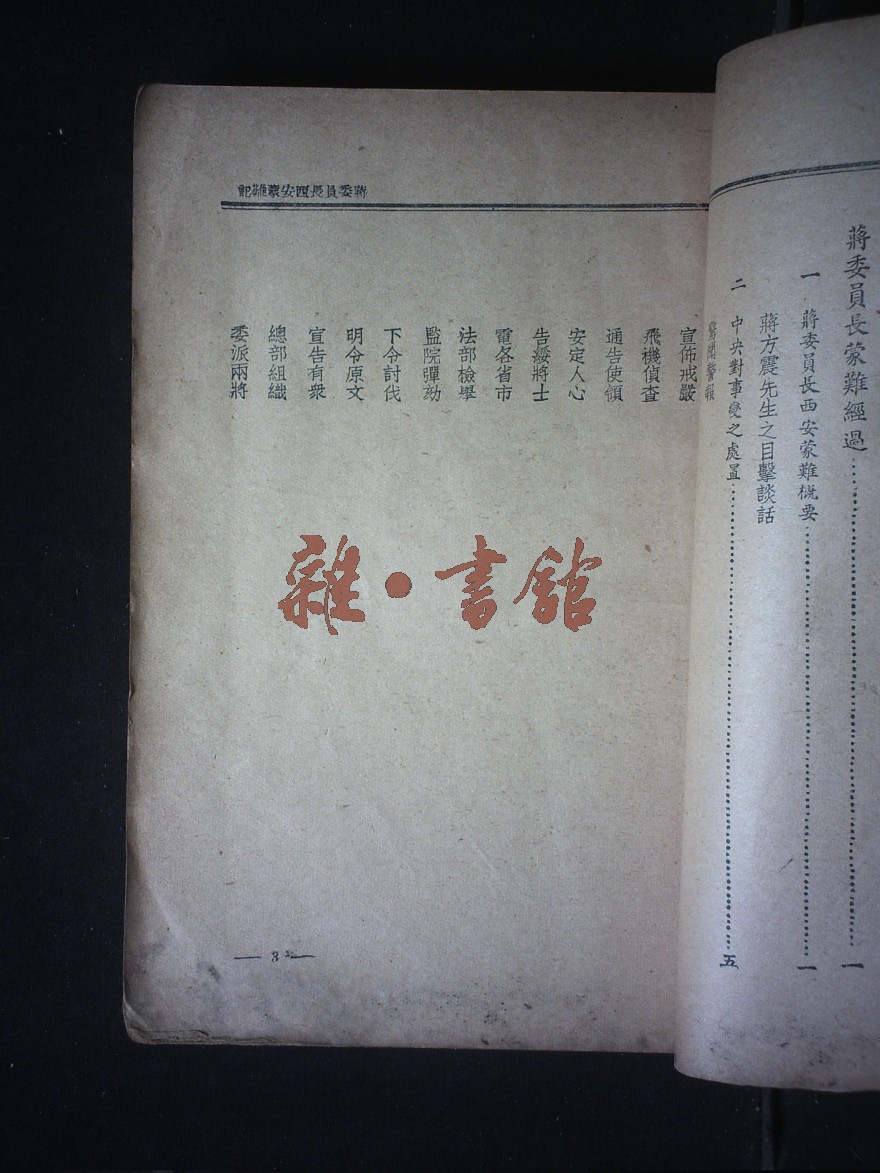 蔣委員長蒙難經過……一
一 蔣委員長西安蒙難概要……一
蔣方震先生之目擊談話
二 中央對事變之處置……五
警報
宣佈戒嚴
飛機偵查
通告使領
安定人心
告綏將士
電各省市
法部檢舉
監院彈劾
下令討伐
明令原文
宣告有衆
總部組織
委派兩將
記難蒙安西長員委蔣
— 3 —
雜·書館